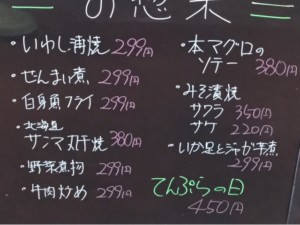 お惣菜
・いわし蒲焼 299円
・ぜんまい煮 299円
・白身魚フライ 299円
・北海道
サンマ丸干焼 380円
・野菜煮物 299円
・牛肉炒め 299円
・本マグロの
ソテー 380円
・みそ漬焼
サワラ 350円
サケ 220円
・いか足とジャガ芋煮
299円
てんぷらの日
450円